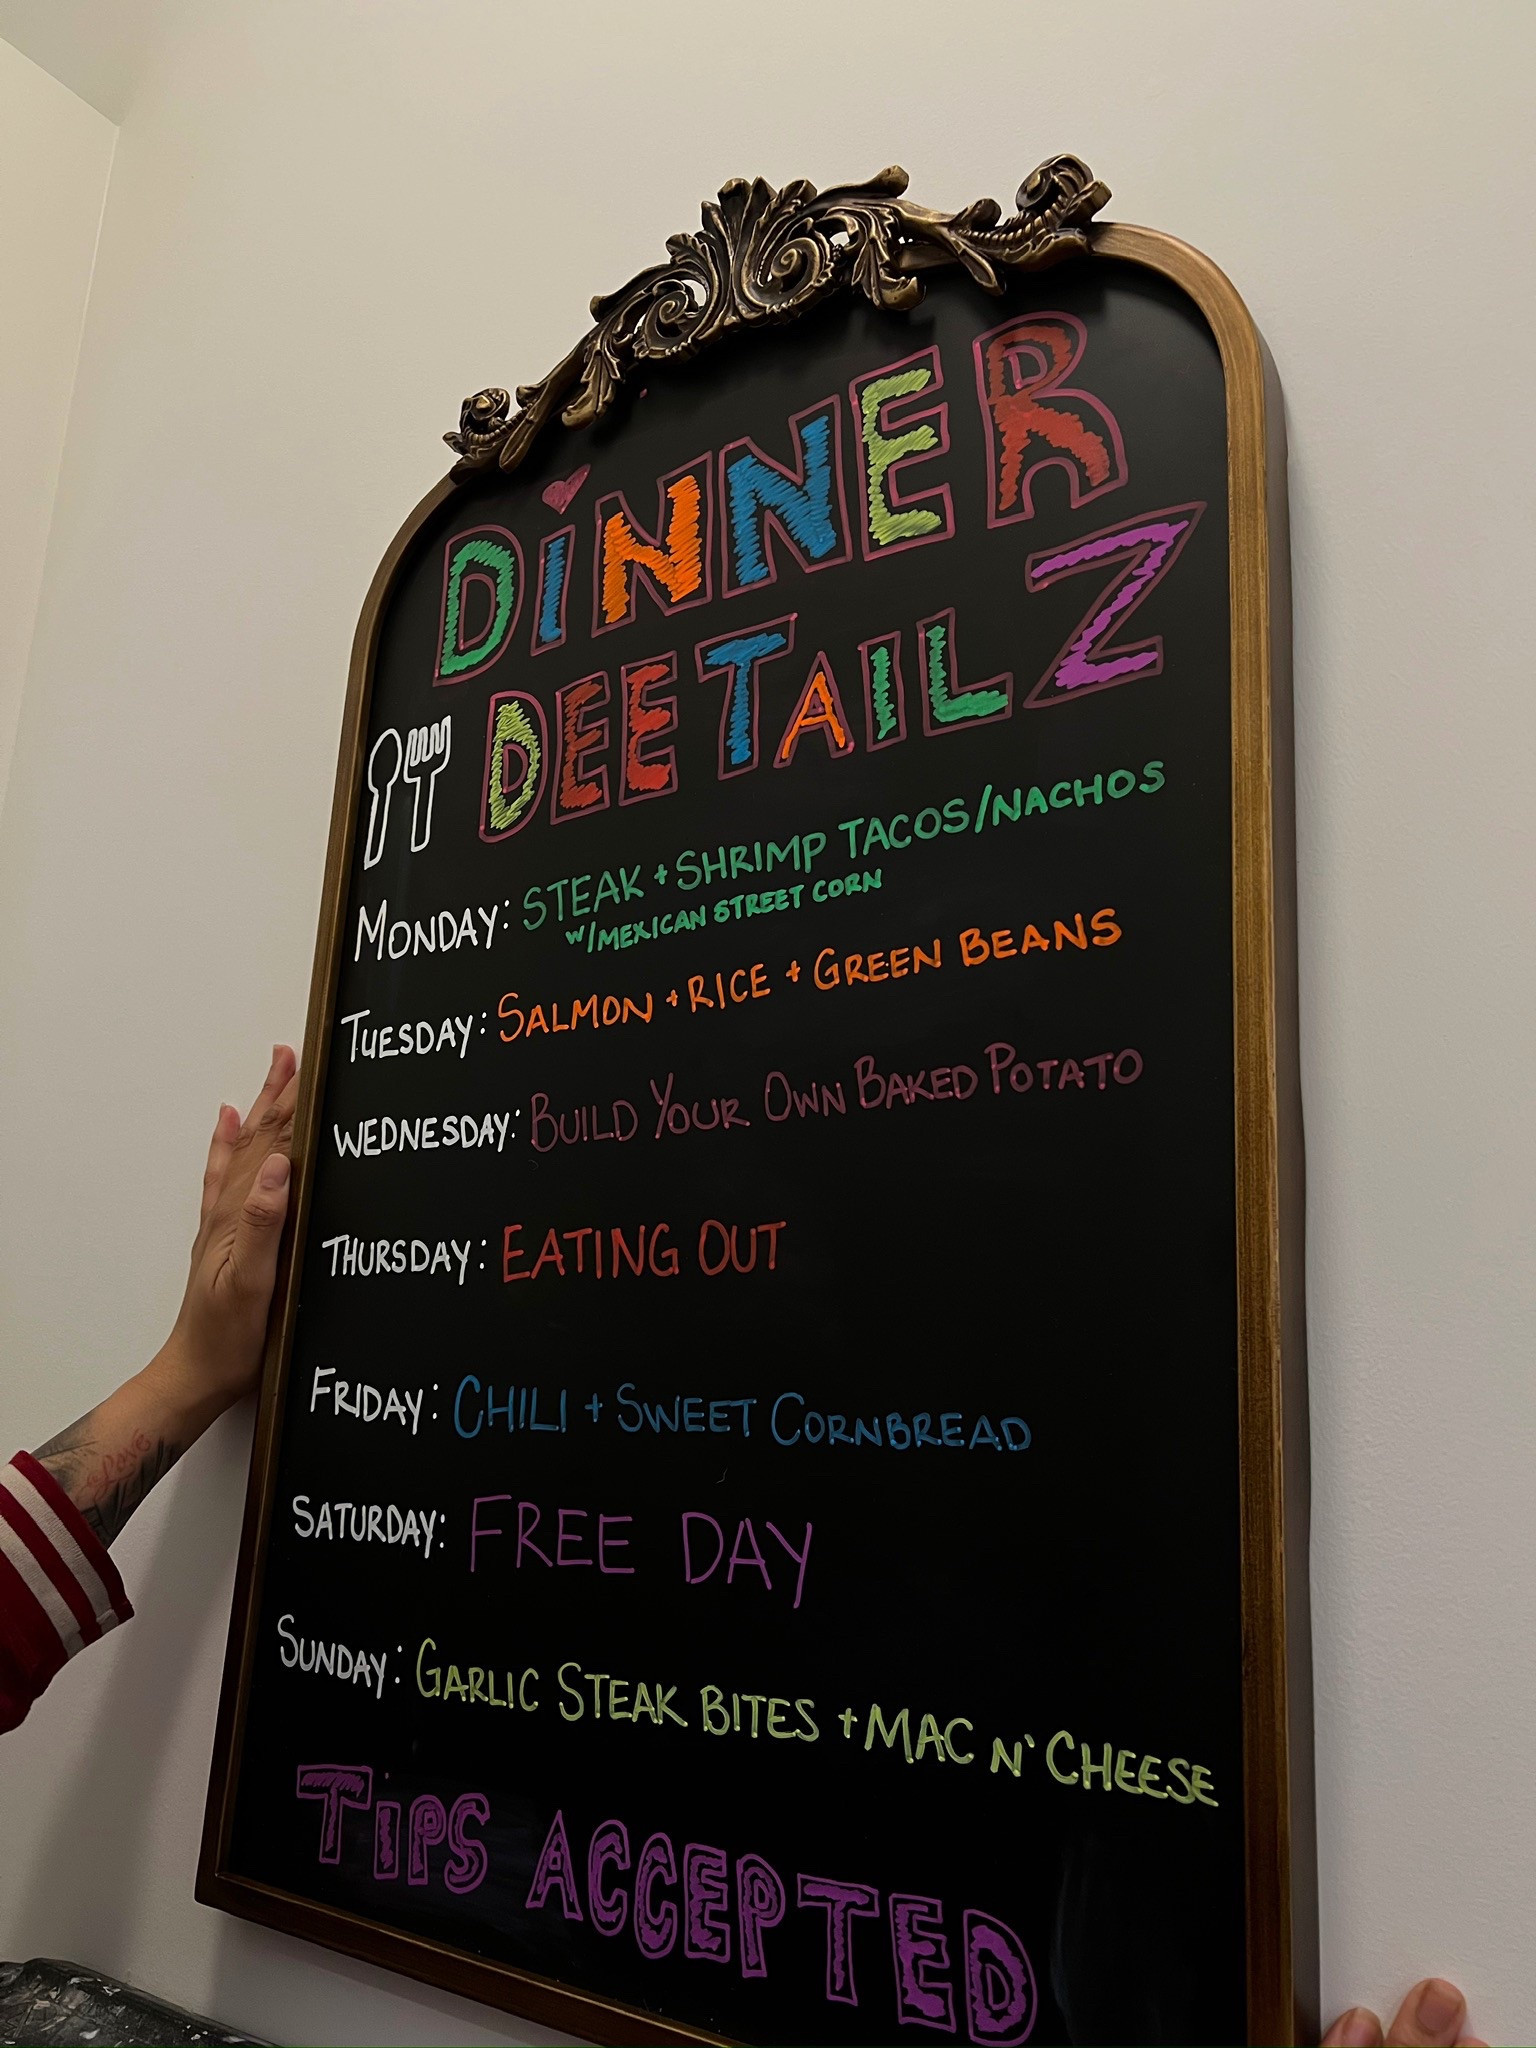 DiNNER
DEETAILZ
MONDAY: STEAK + SHRIMP TACOS/NACHOS
W/MEXICAN STREET CORN
TUESDAY: SALMON + RICE + GREEN BEANS
WEDNESDAY: BUILD YOUR OWN BAKED POTATO
THURSDAY: EATING OUT
FRIDAY: CHILI + SWEET CORNBREAD
SATURDAY: FREE DAY
SUNDAY: GARLIC STEAK BITES + MAC N' CHEESE
TiPS ACCEPTED